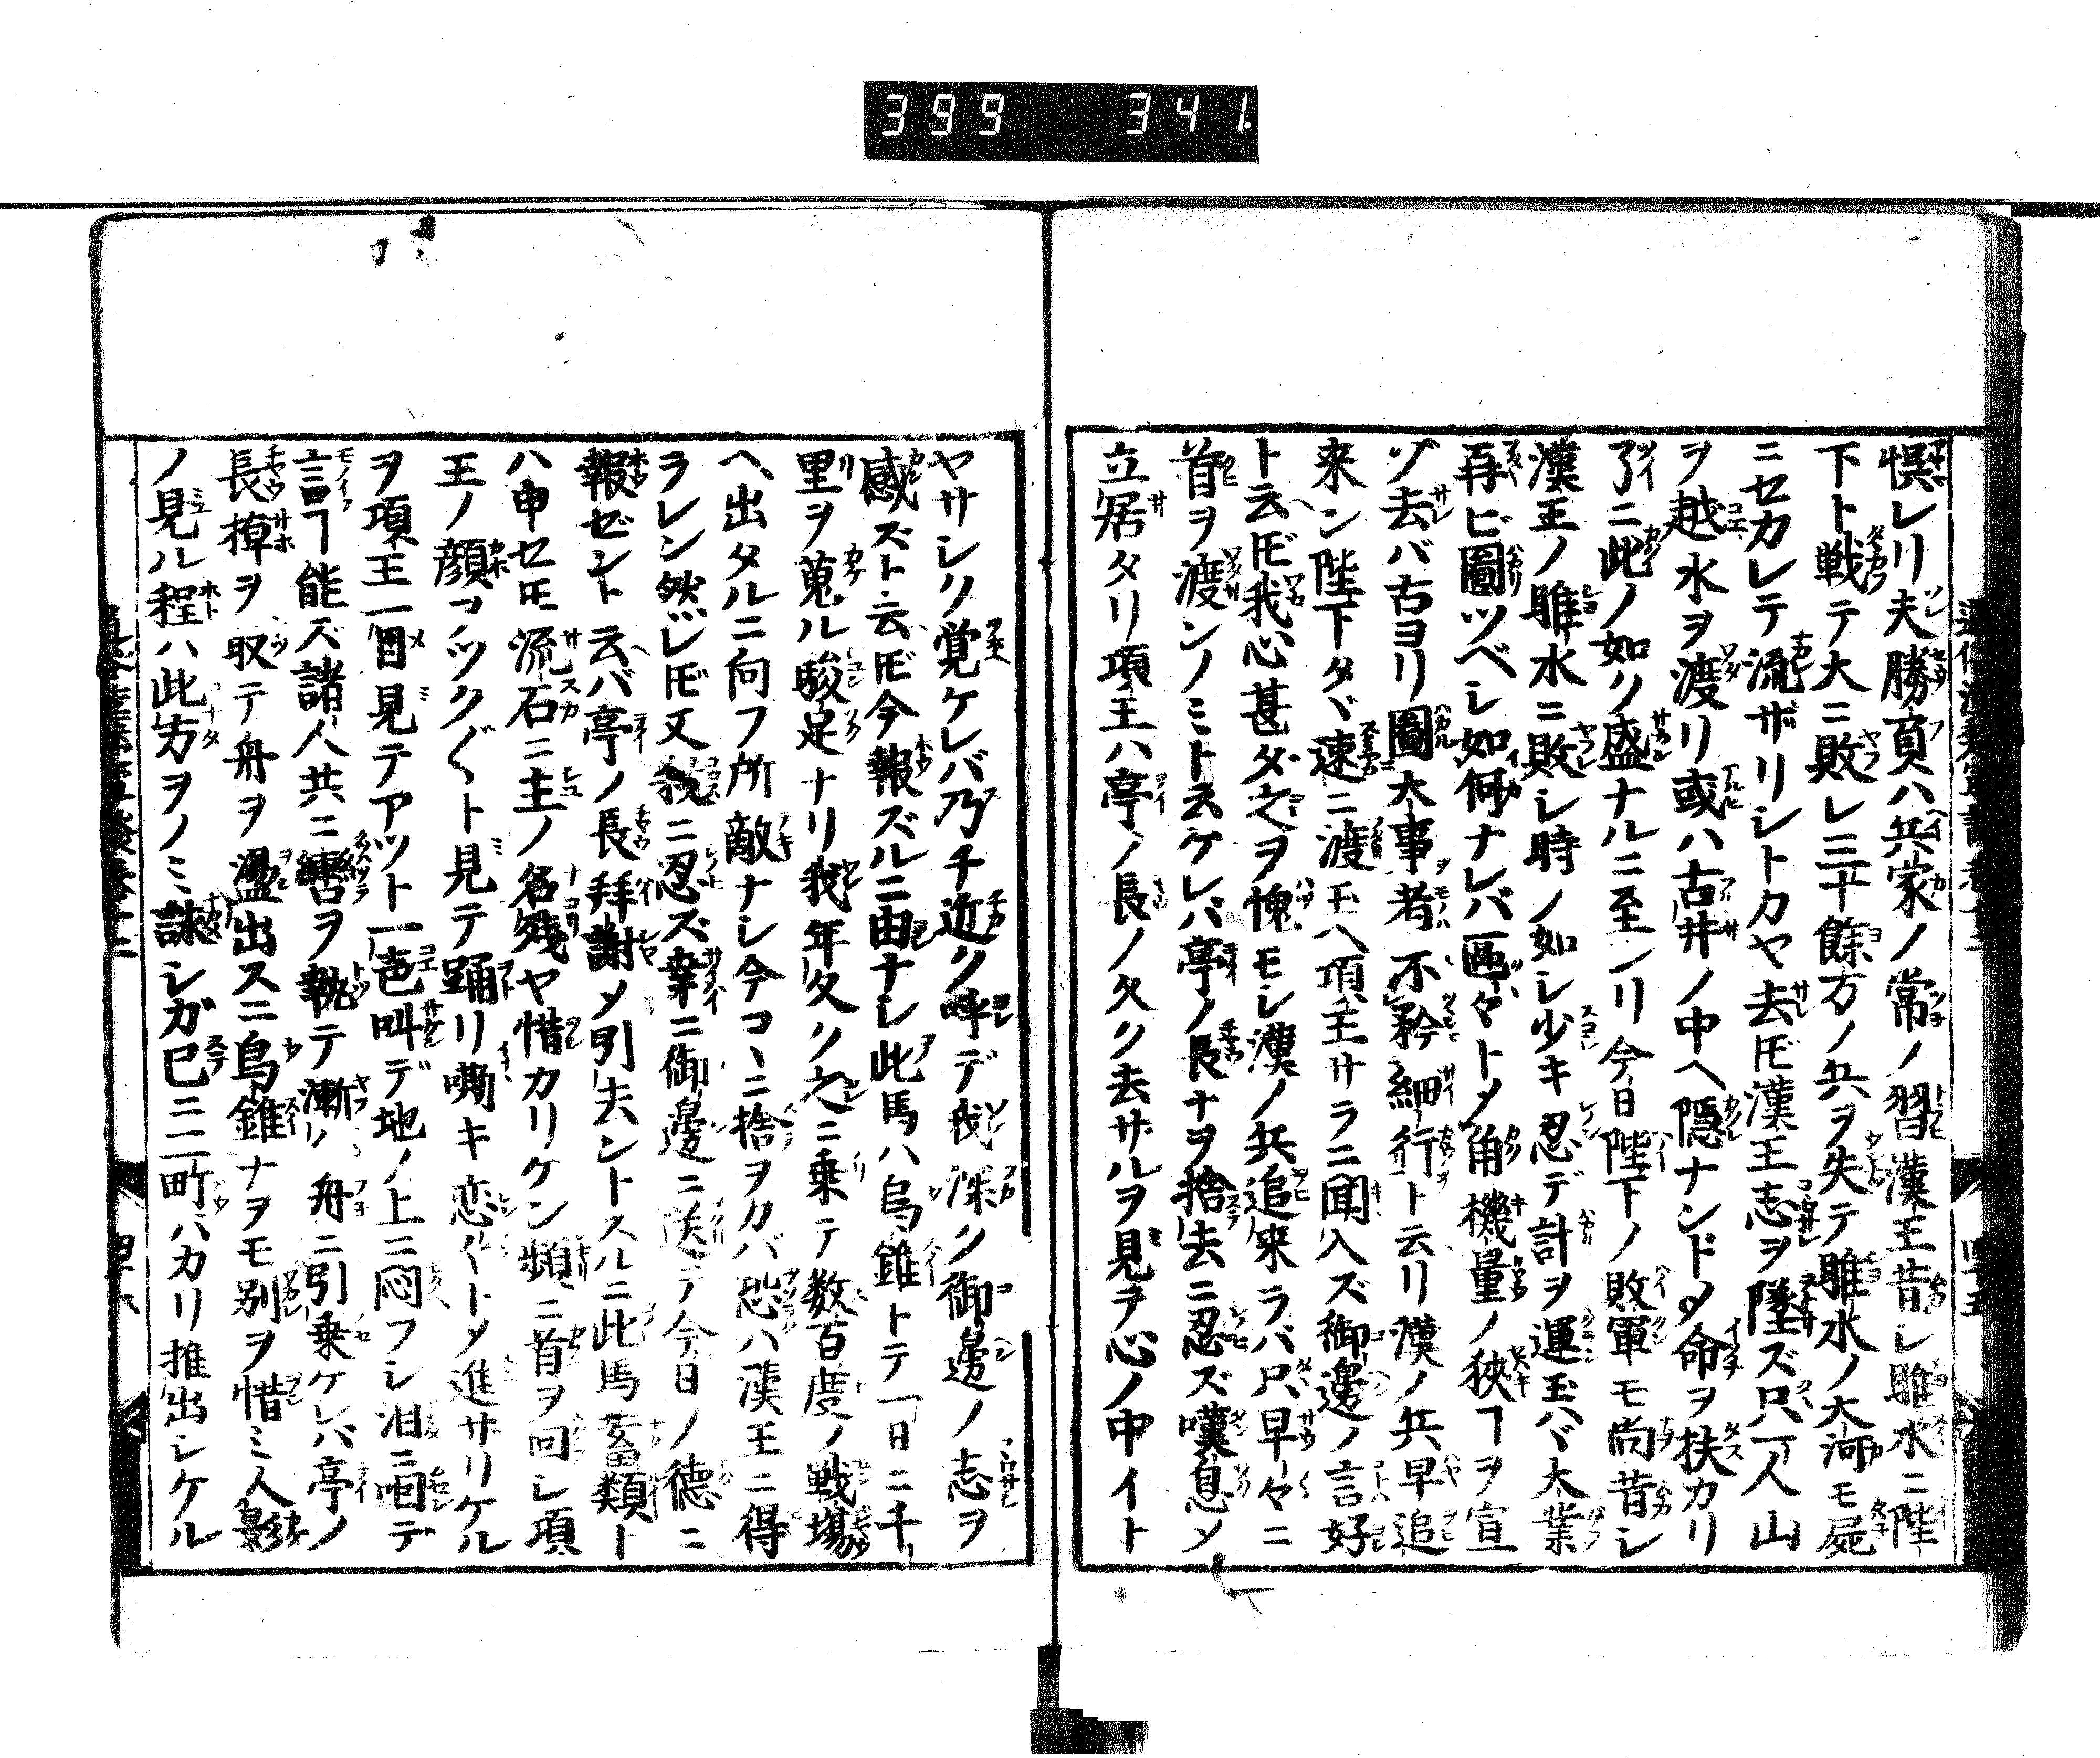 399 341.
悞レリ夫勝負ハ兵家ノ常ノ習漢王昔レ睢水ニ陛
下ト戦テ大ニ敗レ三十餘万ノ兵ヲ失テ睢水ノ大河モ屍
ニセカレテ流ザリシトカヤ去𪜈漢王志ヲ墜ズ只一人山
ヲ越水ヲ渡リ或ハ古井ノ中ヘ隠ナンドメ命ヲ扶カリ
了ニ此ノ如ク盛ナルニ至レリ今日陛下ノ敗軍モ尚昔シ
漢王ノ睢水ニ敗レシ時ノ如シ少キ忍デ計ヲ運玉ハヾ大業
再ビ圖ツベシ如何ナレバ區々トメ角機量ノ狭ヿヲ宣
ゾ去バ古ヨリ圖大事者不矜細行ト云リ漢ノ兵早追
来ン陛下タヾ速ニ渡玉ヘ項王サラニ聞入ズ御邊ノ言好
ト云𪜈我心甚ダ之ヲ愧モシ漢ノ兵追来ラバ只早々ニ
首ヲ渡ンノミト云ケレバ亭ノ長ナヲ捨去ニ忍ズ嘆息メ
立居タリ項王ハ亭ノ長ノ久ク去サルヲ見テ心ノ中イト
ヤサシク覚ケレバ乃チ近ク呼デ我深ク御邊ノ志ヲ
感ズト云𪜈今報ズルニ由ナシ此馬ハ烏錐トテ一日ニ千
里ヲ蒐ル駿足ナリ我年久ク之ニ乗テ数百度ノ戦塲
ヘ出タルニ向フ所敵ナシ今コヽニ捨ヲカバ恐ハ漢王ニ得
ラレン然𪜈又殺ニ忍ズ幸ニ御邊ニ送テ今日ノ德ニ
報ゼント云バ亭ノ長拜謝メ引去ントスルニ此馬畜類ト
ハ申セ𪜈流石ニ主ノ名殘ヤ惜カリケン頻ニ首ヲ回シ項
王ノ顔ヲツク〲ト見テ踊リ嘶キ恋〱トメ進サリケル
ヲ項王一目見テアツト一声叫デ地ノ上ニ悶フシ泪ニ咽デ
言ヿ能ズ諸人共ニ轡ヲ執テ漸ク舟ニ引乗ケレバ亭ノ
長棹ヲ取テ舟ヲ盪出スニ烏錐ナヲモ別ヲ惜ミ人影
ノ見ル程ハ此方ヲノミ詠シガ已ニ二町バカリ推出シケル